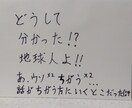 どうして
分かった!?
地球人よ!!
あ、ウソ×2 ちがう×2 …
話がちがう方にいくとこだった